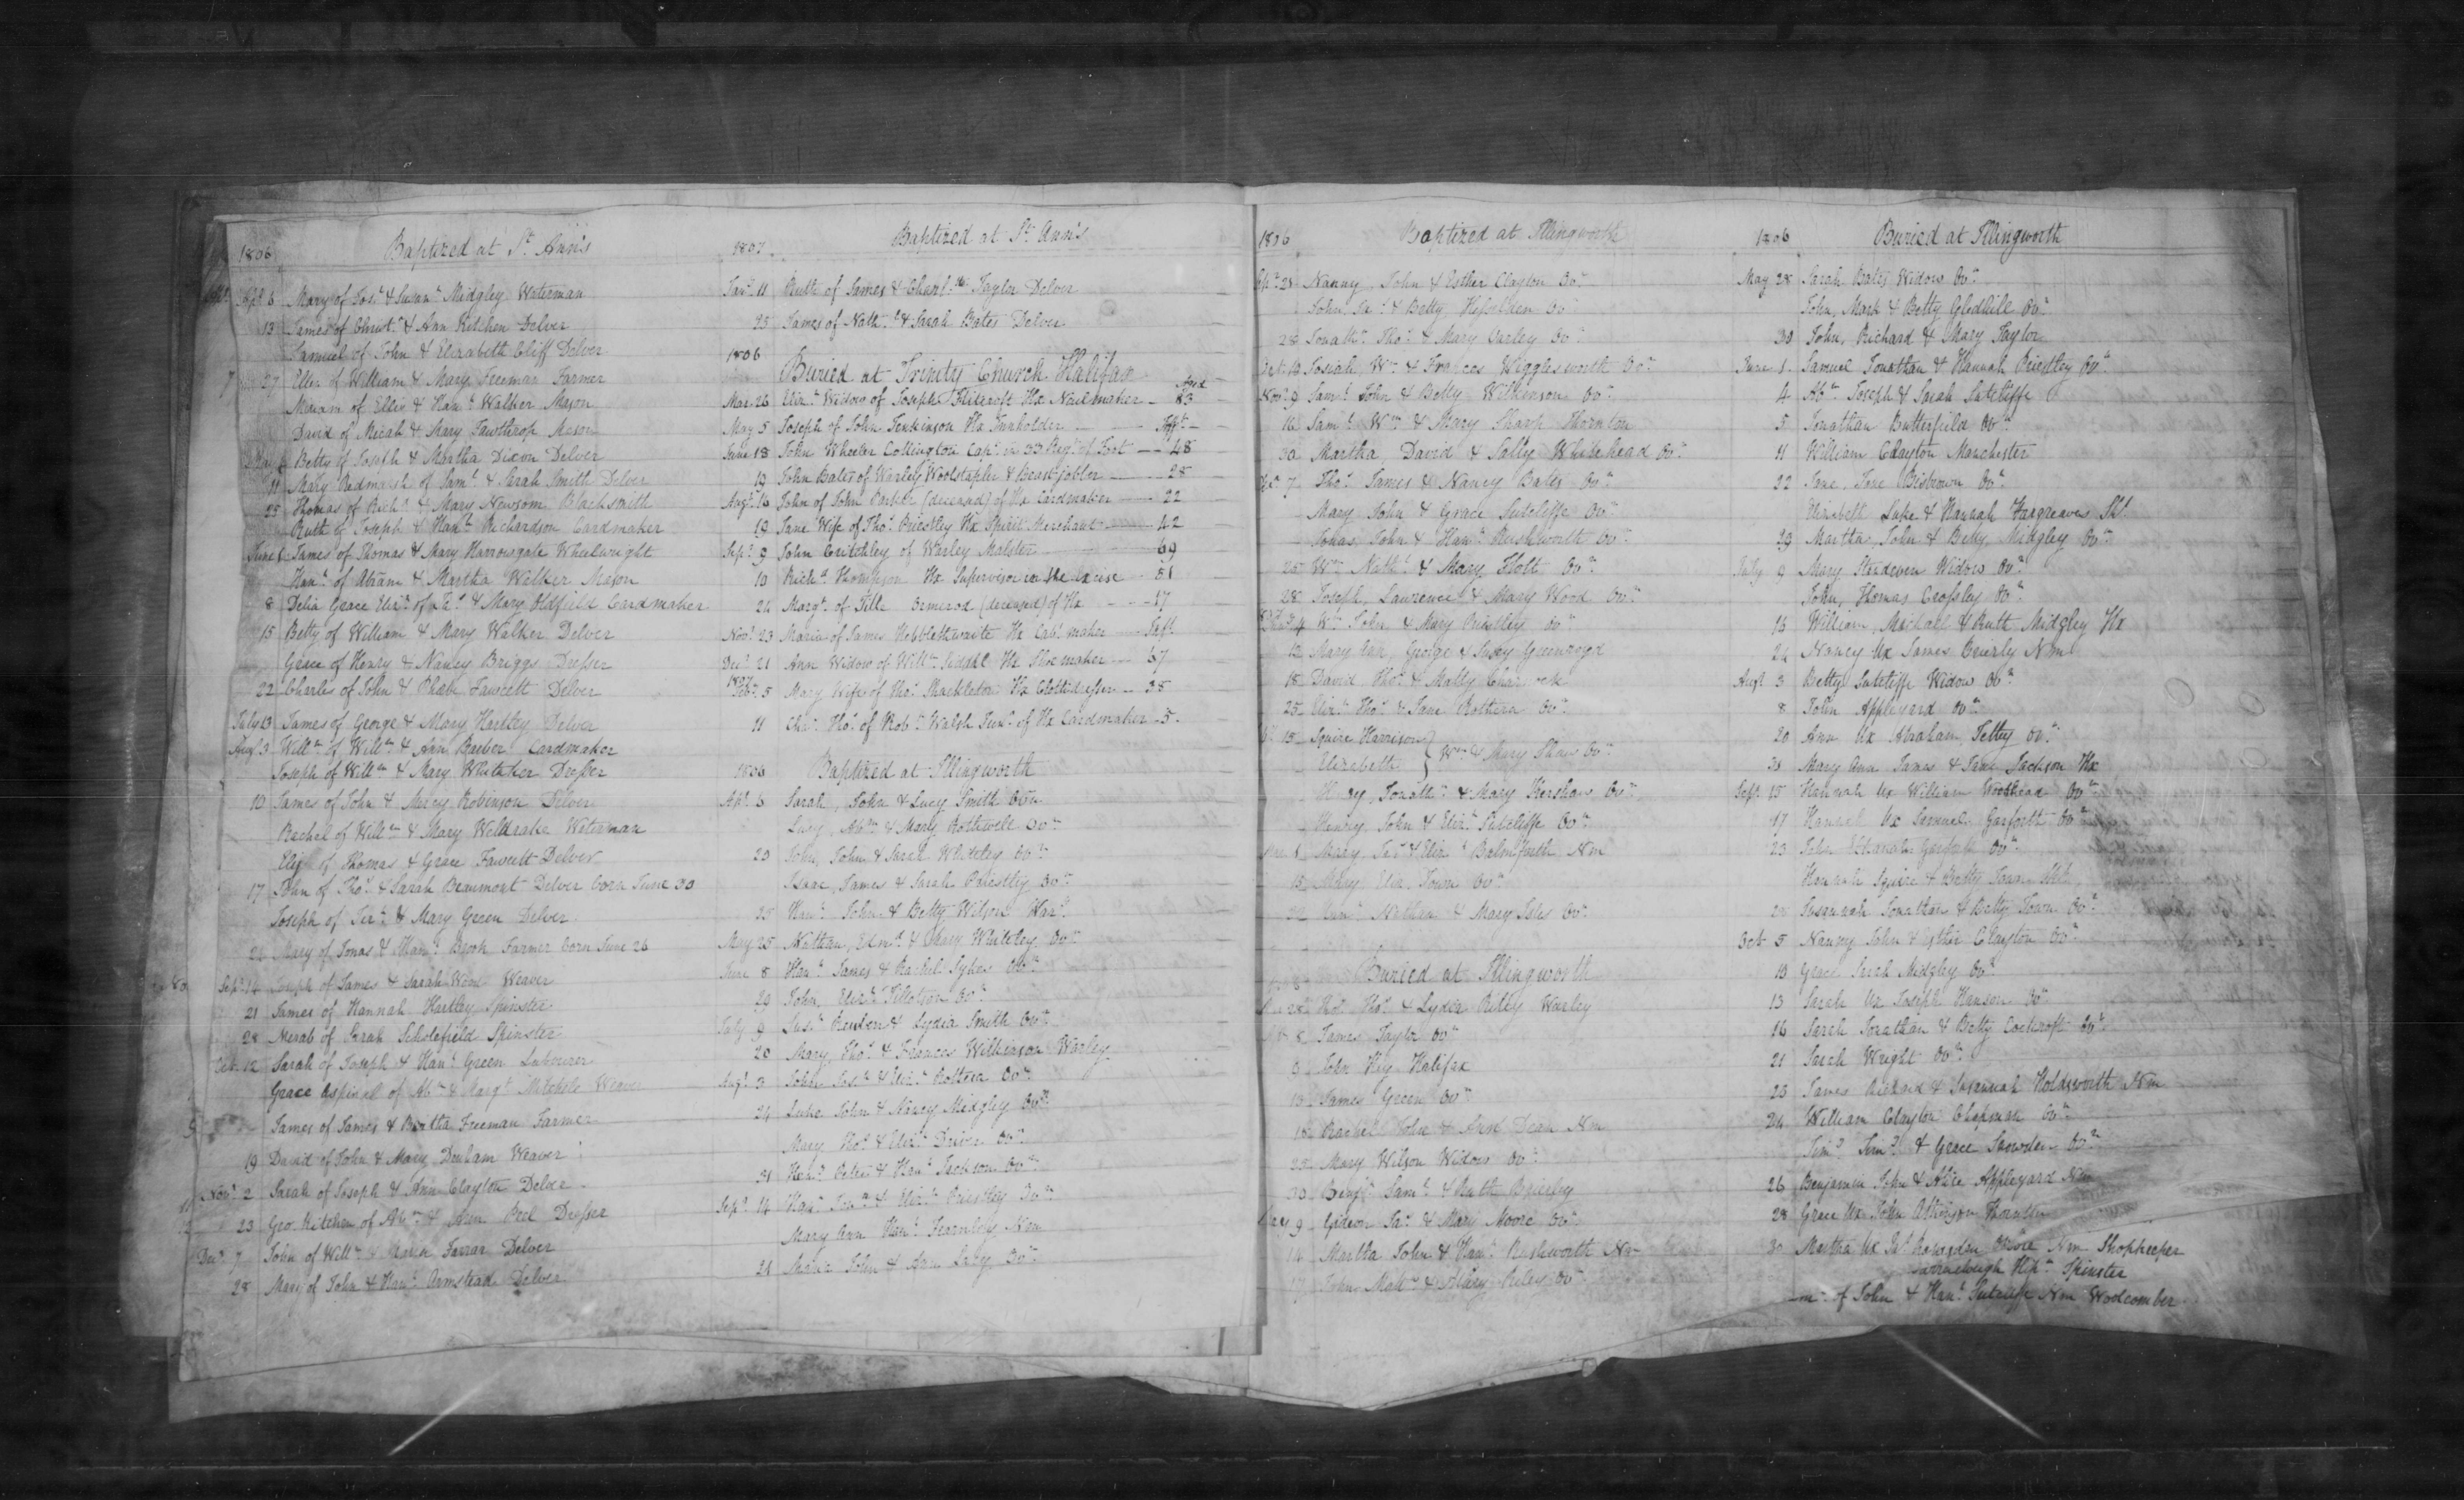 1806 Baptized at St. Ann's
Sept. 6 Mary of Jos.h & Susan.h Midgley Waterman
13 James of Christ.r & Ann Kitchen Delver
Samuel of John & Elizabeth Cliff Delver
27 Ellen of William & Mary Freeman Farmer
Miriam of Ellis & Han.h Walker Mason
David of Micah & Mary Fawthrop Mason
Betty of Joseph & Martha Dixon Delver
11 Mary Redman of Sam.l & Sarah Smith Delver
25 Thomas of Rich.d & Mary Newsom Blacksmith
Ruth of Joseph & Han.h Richardson Cardmaker
June James of Thomas & Mary Harrowgate Wheelwright
Han.h of Abram & Martha Walker Mason
8 Delia Grace Eliz.h of & Mary Oldfield Cardmaker
15 Betty of William & Mary Walker Delver
Grace of Henry & Nancy Briggs Dresser
22 Charles of John & Phoebe Fawcett Delver
July 13 James of George & Mary Hartley Delver
Aug.t 3 Will.m of Will.m & Ann Barber Cardmaker
Joseph of Will.m & Mary Whitaker Dresser
10 James of John & Mercy Robinson Delver
Rachel of Will.m & Mary Waterman
Eliz. of Thomas & Grace Fawcett Delver
17 John of Tho.s & Sarah Beaumont Delver born June 30
Joseph of & Mary Green Delver
24 Mary of Jonas & Han.h Brook Farmer born June 26
Sep.r 14 Joseph of James & Sarah Wood Weaver
21 James of Hannah Hartley Spinster
28 Merab of Sarah Scholefield Spinster
Oct. 12 Sarah of Joseph & Han.h Green Labourer
Grace Aspinel of Ab.m & Marg.t Mitchell Weaver
James of James & Bertha Freeman Farmer
19 David of John & Mary Denham Weaver
Nov.r 2 Sarah of Joseph & Ann Clayton Delver
23 Geo. Kitchen of Ab.m & Ann Peel Dresser
Dec.r 7 John of Will.m & Farrar Delver
28 Mary of John & Han.h Armstead Delver
1807 Baptized at St. Ann's
Jan.y 11 Ruth of James & Taylor Delver
25 James of Nath.l & Sarah Bates Delver
1806
Buried at Trinity Church Halifax
Aged
Mar. 26 Eliz.h Widow of Joseph Hx Nailmaker - 83
May 5 Joseph of John Jenkinson Hx Innholder - Inf.t
June 18 John Wheeler Collington Cap.t in 33 Reg.t of Foot - 48
19 John Bates of Warley Woolstapler & Beast-jobber - 28
Aug.t 14 John of John Parker (deceased) of Hx Cardmaker - 22
19 Jane Wife of Tho.s Priestley Hx Spirit Merchant - 42
Sep.r 9 John Critchley of Warley Malster - 69
10 Rich.d Thompson Hx Supervisor in the Excise - 51
24 Marg.t of Ormerod (deceased) of Hx - 17
Nov.r 23 Maria of James Hebblethwaite Hx Cab.t maker - Inf.t
Dec.r 21 Ann Widow of Will.m Hx Shoemaker - 67
1807 Feb. 5 Mary Wife of Tho.s Shackleton Hx Clothdresser - 35
11 Cha.s Tho.s of Rob.t Walsh Jun.r of Hx Cardmaker - 5
1806 Baptized at Illingworth
Ap.l 6 Sarah, John & Lucy Smith Ov.n
Lucy, Ab.m & Mary Rothwell Ov.n
20 John, John & Sarah Whiteley Ov.n
Isaac, James & Sarah Priestley Ov.n
25 Han.h John & Betty Wilson
May 25 Nathan, Edm.d & Mary Whiteley Ov.n
June 8 Han.h James & Rachel Sykes Ov.n
29 John, Eliz.h Tillotson Ov.n
July 9 Reuben & Lydia Smith Ov.n
20 Mary, Tho.s & Frances Wilkinson Warley
Aug.t 3 John & Eliz.h Rothera Ov.n
24 Luke John & Nancy Midgley Ov.n
Mary Tho.s & Eliz.h Driver Ov.n
31 Peter & Han.h Jackson Ov.n
Sep.r 14 Han.h & Eliz.h Priestley Ov.n
Mary Ann Han.h Fearnley Nm
21 John & Ann Lacy Ov.n
1806 Baptized at Illingworth
Sep.r 28 Nanny, John & Esther Clayton Ov.n
John & Betty Heselden Ov.n
28 Jonath.n Tho.s & Mary Varley Ov.n
Oct. 19 Josiah, W.m & Frances Wigglesworth Ov.n
Nov.r 9 Sam.l John & Betty Wilkinson Ov.n
16 Sam.l W.m & Mary Sharp Thornton
30 Martha David & Sally Whitehead Ov.n
Dec. 7 Tho.s James & Nancy Bates Ov.n
Mary John & Grace Sutcliffe Ov.n
Jonas, John & Han.h Rushworth Ov.n
25 W.m Nath.l & Mary Holt Ov.n
28 Joseph, Lawrence & Mary Wood Ov.n
4 W.m John & Mary Priestley Ov.n
12 Mary Ann, George & Greenwood
18 David, Tho.s & Mally Charnock
25 Eliz.h Tho.s & Jane Rothera Ov.n
15 Squire Harrison } W.m & Mary Shaw Ov.n
Elizabeth }
Jonath.n & Mary Kershaw Ov.n
Henry, John & Eliz.h Sutcliffe Ov.n
Mary, & Eliz.h Balmforth Nm
15 Mary, Eliz. Town Ov.n
22 Nathan & Mary Isles Ov.n
Buried at Illingworth
28 Tho.s Tho.s & Lydia Riley Warley
8 James Taylor Ov.n
John Hey Halifax
13 James Green Ov.n
18 Rachel John & Ann Dean Nm
25 Mary Wilson Widow Ov.n
30 Benj.n Sam.l & Ruth Brierley
May 9 Gideon Ja.s & Mary Moore Ov.n
14 Martha John & Han.h Rushworth Nm
17 John & Mary Riley Ov.n
1806 Buried at Illingworth
May 28 Sarah Bates Widow Ov.n
John, Mark & Betty Gledhill Ov.n
30 John, Richard & Mary Taylor
June 1 Samuel Jonathan & Hannah Priestley Ov.n
4 Ab.m Joseph & Sarah Sutcliffe
5 Jonathan Butterfield Ov.n
11 William Clayton Manchester
22 Jane, Jane Bisbrown Ov.n
Elizabeth Luke & Hannah Hargreaves
29 Martha, John & Betty Midgley Ov.n
July 9 Mary Widow Ov.n
John, Thomas Crossley Ov.n
18 William, Michael & Ruth Midgley Hx
24 Nancy Ux James Brierly Nm
Aug.t 3 Betty Sutcliffe Widow Ov.n
8 John Appleyard Ov.n
20 Ann Ux Abraham Tetley Ov.n
31 Mary Ann James & Jane Jackson Hx
Sep.r 15 Hannah Ux William Woodhead Ov.n
17 Hannah Ux Samuel Garforth Ov.n
23 John Garforth Ov.n
Hannah Squire & Betty Town
28 Susannah Jonathan & Betty Town Ov.n
Oct. 5 Nanny John & Esther Clayton Ov.n
10 Grace Sarah Midgley Ov.n
13 Sarah Ux Joseph Hanson Ov.n
16 Sarah Jonathan & Betty Cockcroft Ov.n
21 Sarah Wright Ov.n
23 James Richard & Susannah Holdsworth Nm
24 William Clayton Chapman Ov.n
Tim.y Tim.y & Grace Snowden Ov.n
26 Benjamin John & Alice Appleyard Nm
28 Grace Ux John Atkinson Thornton
30 Martha Ux Ramsden Nm Shopkeeper
Spinster
of John & Han.h Sutcliffe Nm Woolcomber